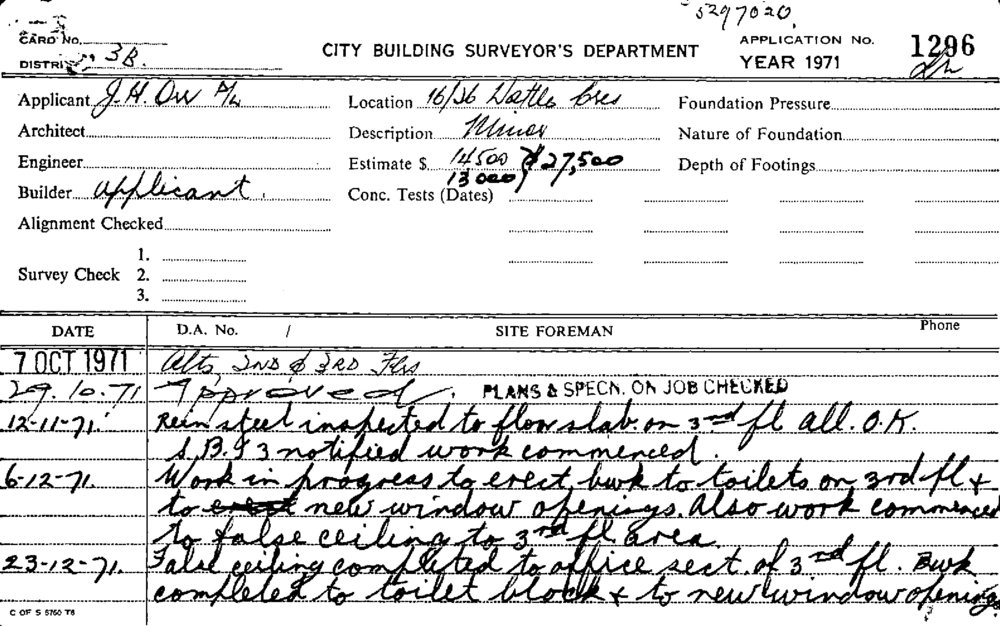 5297020.
CARD No.
DISTRICT 3B.
CITY BUILDING SURVEYOR'S DEPARTMENT
APPLICATION No. 1296
YEAR 1971
Applicant J.H. Orr P/L
Location 16/36 Wattle Cres
Foundation Pressure
Architect
Description Minor
Nature of Foundation
Engineer
Estimate $ 14500 $27,500
13000
Depth of Footings
Builder applicant.
Conc. Tests (Dates)
Alignment Checked
1.
Survey Check 2.
3.
DATE D.A. No. / SITE FOREMAN Phone
7 OCT 1971 Alts, 2ND & 3RD Flrs
29.10.71 Approved. PLANS & SPECN. ON JOB CHECKED
12-11-71. Rein steel inspected to floor slab on 3rd fl all. O.K.
S.B.I 3 notified work commenced.
6-12-71. Work in progress to erect bwk to toilets on 3rd fl +
to erect new window openings. Also work commenced
to false ceiling to 3rd fl area.
23-12-71. False ceiling completed to office sect of 3rd fl. Bwk
completed to toilet block + to new window openings
C OF S 5760 T8